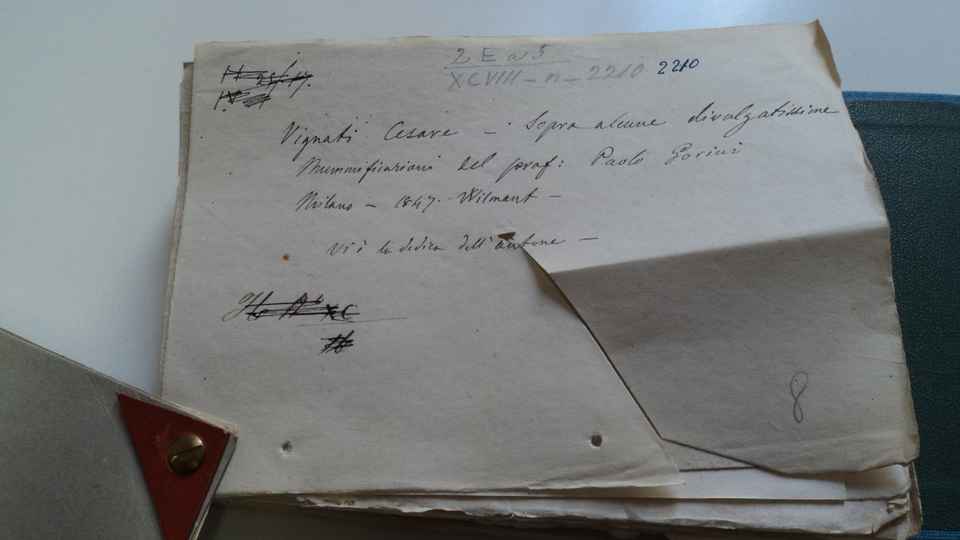 2 E a 5
XCVIII - n - 2210 2210
Vignati Cesare - Sopra alcune divolgatissime
Mummificazioni del prof: Paolo Gorini
Milano - 1847. Wilmant -
Vi è la dedica dell'autore -
XC
8